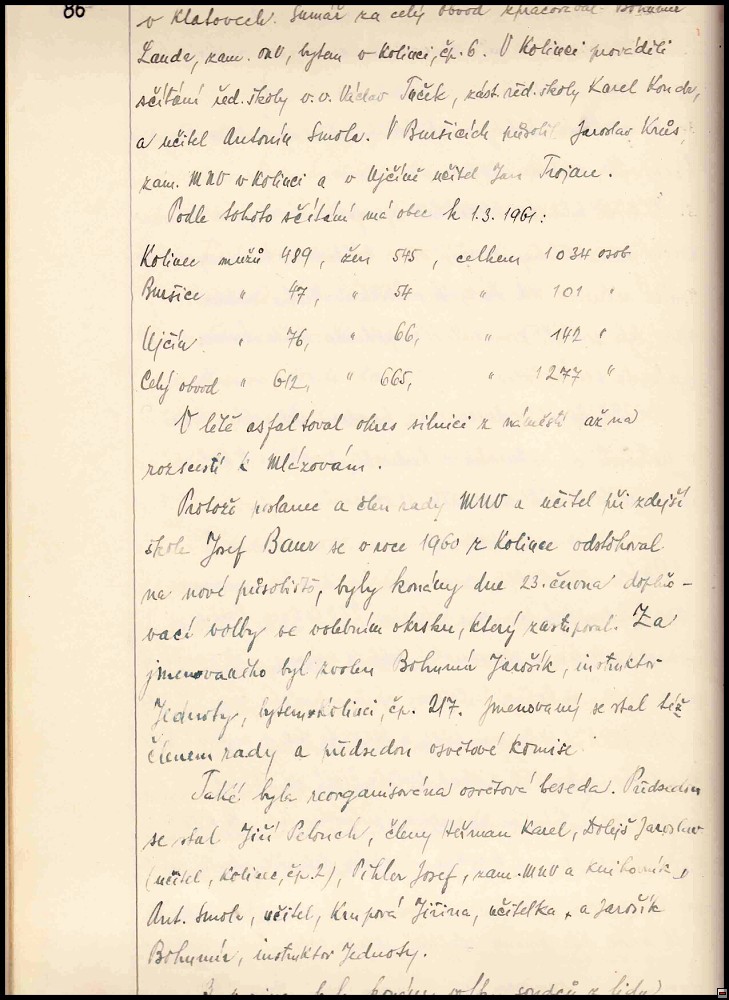 86
v Klatovech. Sumář za celý obvod zpracoval Bohumír
Landa, zam. ONV, bytem v Kolinci, čp. 6. V Kolinci prováděli
sčítání řed. školy v.v. Václav Tuček, zást. řed. školy Karel Honda,
a učitel Antonín Smola. V Buršicích působil Jaroslav Krůs,
zam. MNV v Kolinci a v Ujčíně učitel Jan Trojan.
Podle tohoto sčítání má obec k 1.3. 1961:
Kolinec mužů 489, žen 545, celkem 1034 osob
Buršice " 47, " 54 " 101 "
Ujčín " 76, " 66, " 142 "
Celý obvod " 612, " 665, " 1277 "
V létě asfaltoval okres silnici z náměstí až na
rozcestí k Mlázovám.
Protože poslanec a člen rady MNV a učitel při zdejší
škole Josef Baur se v roce 1960 z Kolince odstěhoval
na nové působiště, byly konány dne 23. června doplňo-
vací volby ve volebním okrsku, který zastupoval. Za
jmenovaného byl zvolen Bohumír Jarošík, instruktor
Jednoty, bytem v Kolinci, čp. 217. Jmenovaný se stal též
členem rady a předsedou osvětové komise.
Také byla reorganisována osvětová beseda. Předsedou
se stal Jiří Pelouch, členy Heřman Karel, Dolejš Jaroslav
(učitel, Kolinec, čp. 2), Pihler Josef, zam. MNV a knihovník,
Ant. Smola, učitel, Krupová Jiřina, učitelka, a Jarošík
Bohumír, instruktor Jednoty.